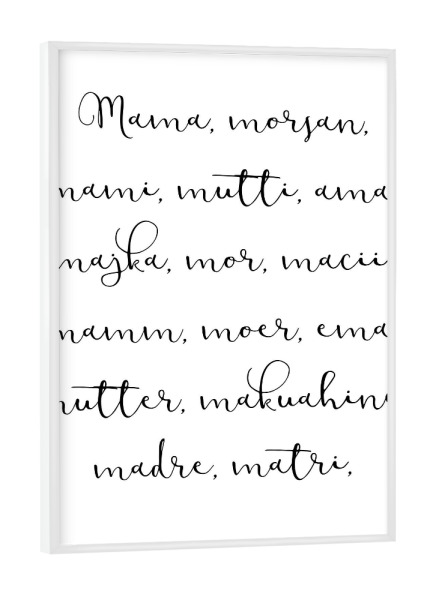 Mama, morsan,
mami, mutti, ama
majka, mor, macii
mamm, moer, ema
mutter, makuahine
madre, matri,